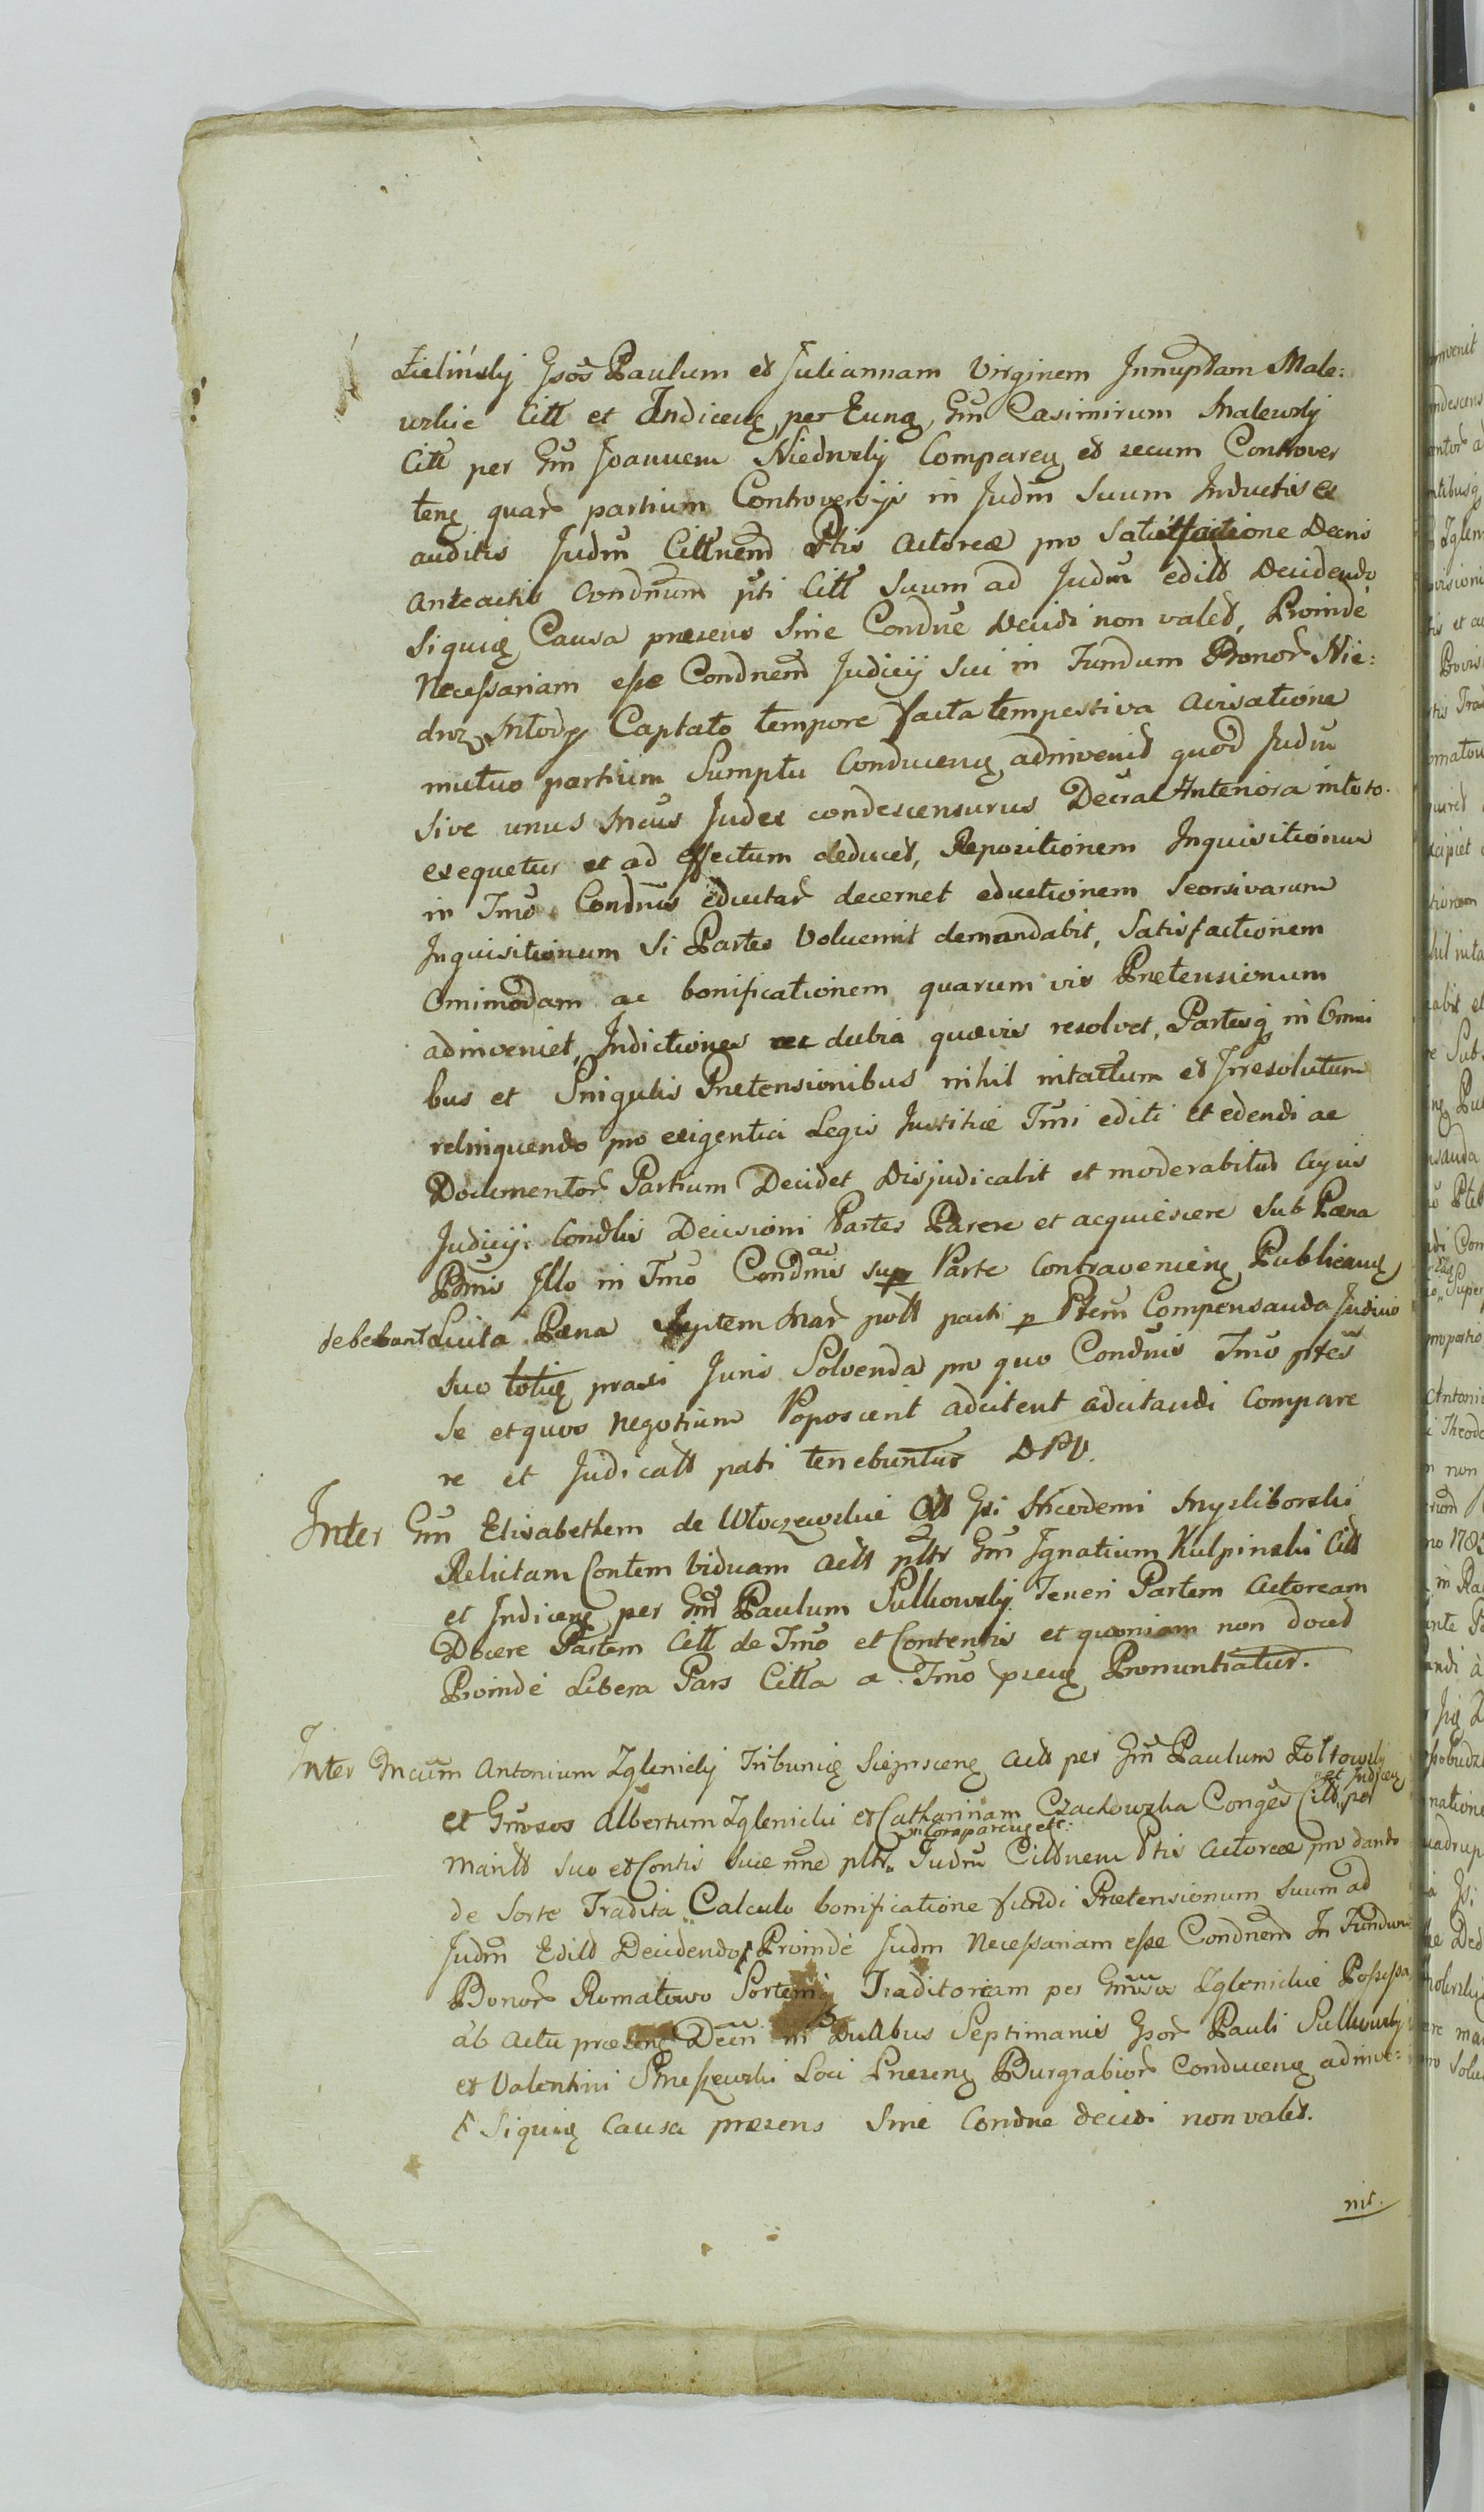 Zielińsky Gsos Paulum et Juliannam Virginem Innuptam Male:
wskie Citt et Indiceng per Eung Gm Casimirum Malewsky
Citt per Gm Joannem Niedwsky Compareng et secum Controver
teng quar partium Controversijs in Judm Suum Inductis et
auditis Judm Cittnem Ptis Actoreæ pro Satisfactione Decris
anteactis Condnum pti Citt Suum ad Judm edilt Decidendo
Siquiq Causa præsens Sine Condne Decidi non valet, Proinde
Necessariam esse Condnem Judicij Sui in Fundum Bonor Nie:
drz Mlody Captato tempore facta tempestiva avisatione
mutuo partium Sumptu Conduceng, adinvenit quod Judm
Sive unus Mcus Judex condescensurus Decra Anteriora in toto
exequetur et ad effectum deducet, Repositionem Inquisitionum
in Tmo Condnis eductar decernet eductionem Seorsivarum
Inquisitionum Si Partes Voluerint demandabit, Satisfactionem
Omimodam ac bonificationem quarumvis Prætensionum
adinveniet, Indictiones ac dubia quævis resolvet, Partesq in Omni
bus et Singulis Prætensionibus nihil intactum et Irresolutum
relinquendo pro exigentia Legis Justitiæ Tmi editi et edendi ac
Documentor Partium Decidet Disjudicabit et moderabitur Cujus
Judicij Condlis Decisioni Partes Parere et acquiescere Sub Pæna
Bmis Illo in Tmo Condnis sup Parte Contravenieng Publicang
debebant Luita Pæna Septem Mar poltt parti p Ptem Compensanda Judicio
Suo toting praxi Juris Solvenda pro quo Condnis Tmo ptes
Se et quos negotium Poposcerit adcitent adcitandi Compare
re et Judicatt pati tenebuntur DPV.
Inter Gm Elisabethem de Wloczewskie Ott Gsi Nicodemi Mysliborski
Relictam Contem viduam Actt pltr Gm Ignatium Kulpinski Citt
et Indiceng per Gm Paulum Sulkowsky Teneri Partem Actoream
Docere Partem Citt de Tmo et Contentis et quoniam non docet
Proinde Libera Pars Citta a Tmo præng Pronuntiatur.
Inter Mcum Antonium Zglenicky Tribunig Sieprsceng Actt per Gm Paulum Zoltowsky
et Indiceng
et Gnosos Albertum Zglenicki et Catharinam Czackowska Conges Citt, per
Compareng etc:
Mantt suo et Contis suæ nne pltr Judm Cittnem Ptis Actoreæ pro dando
de Sorte Tradita Calculo bonificatione fundi Prætensionum Suum ad
Judm Edilt Decidendo Proinde Judm Necessariam esse Condnem In Fundum
Bonor Romatowo Sortem Traditoriam per Gnosos Zglenickie Possessa
ab Actu præseng Decri in Duabus Septimanis Gsor Pauli Sulkowsky
et Valentini Smeszewski Loci Præseng Burgrabior Conduceng adinve:
Siquiq Causa præsens Sine Condne decidi non valet.
nit.